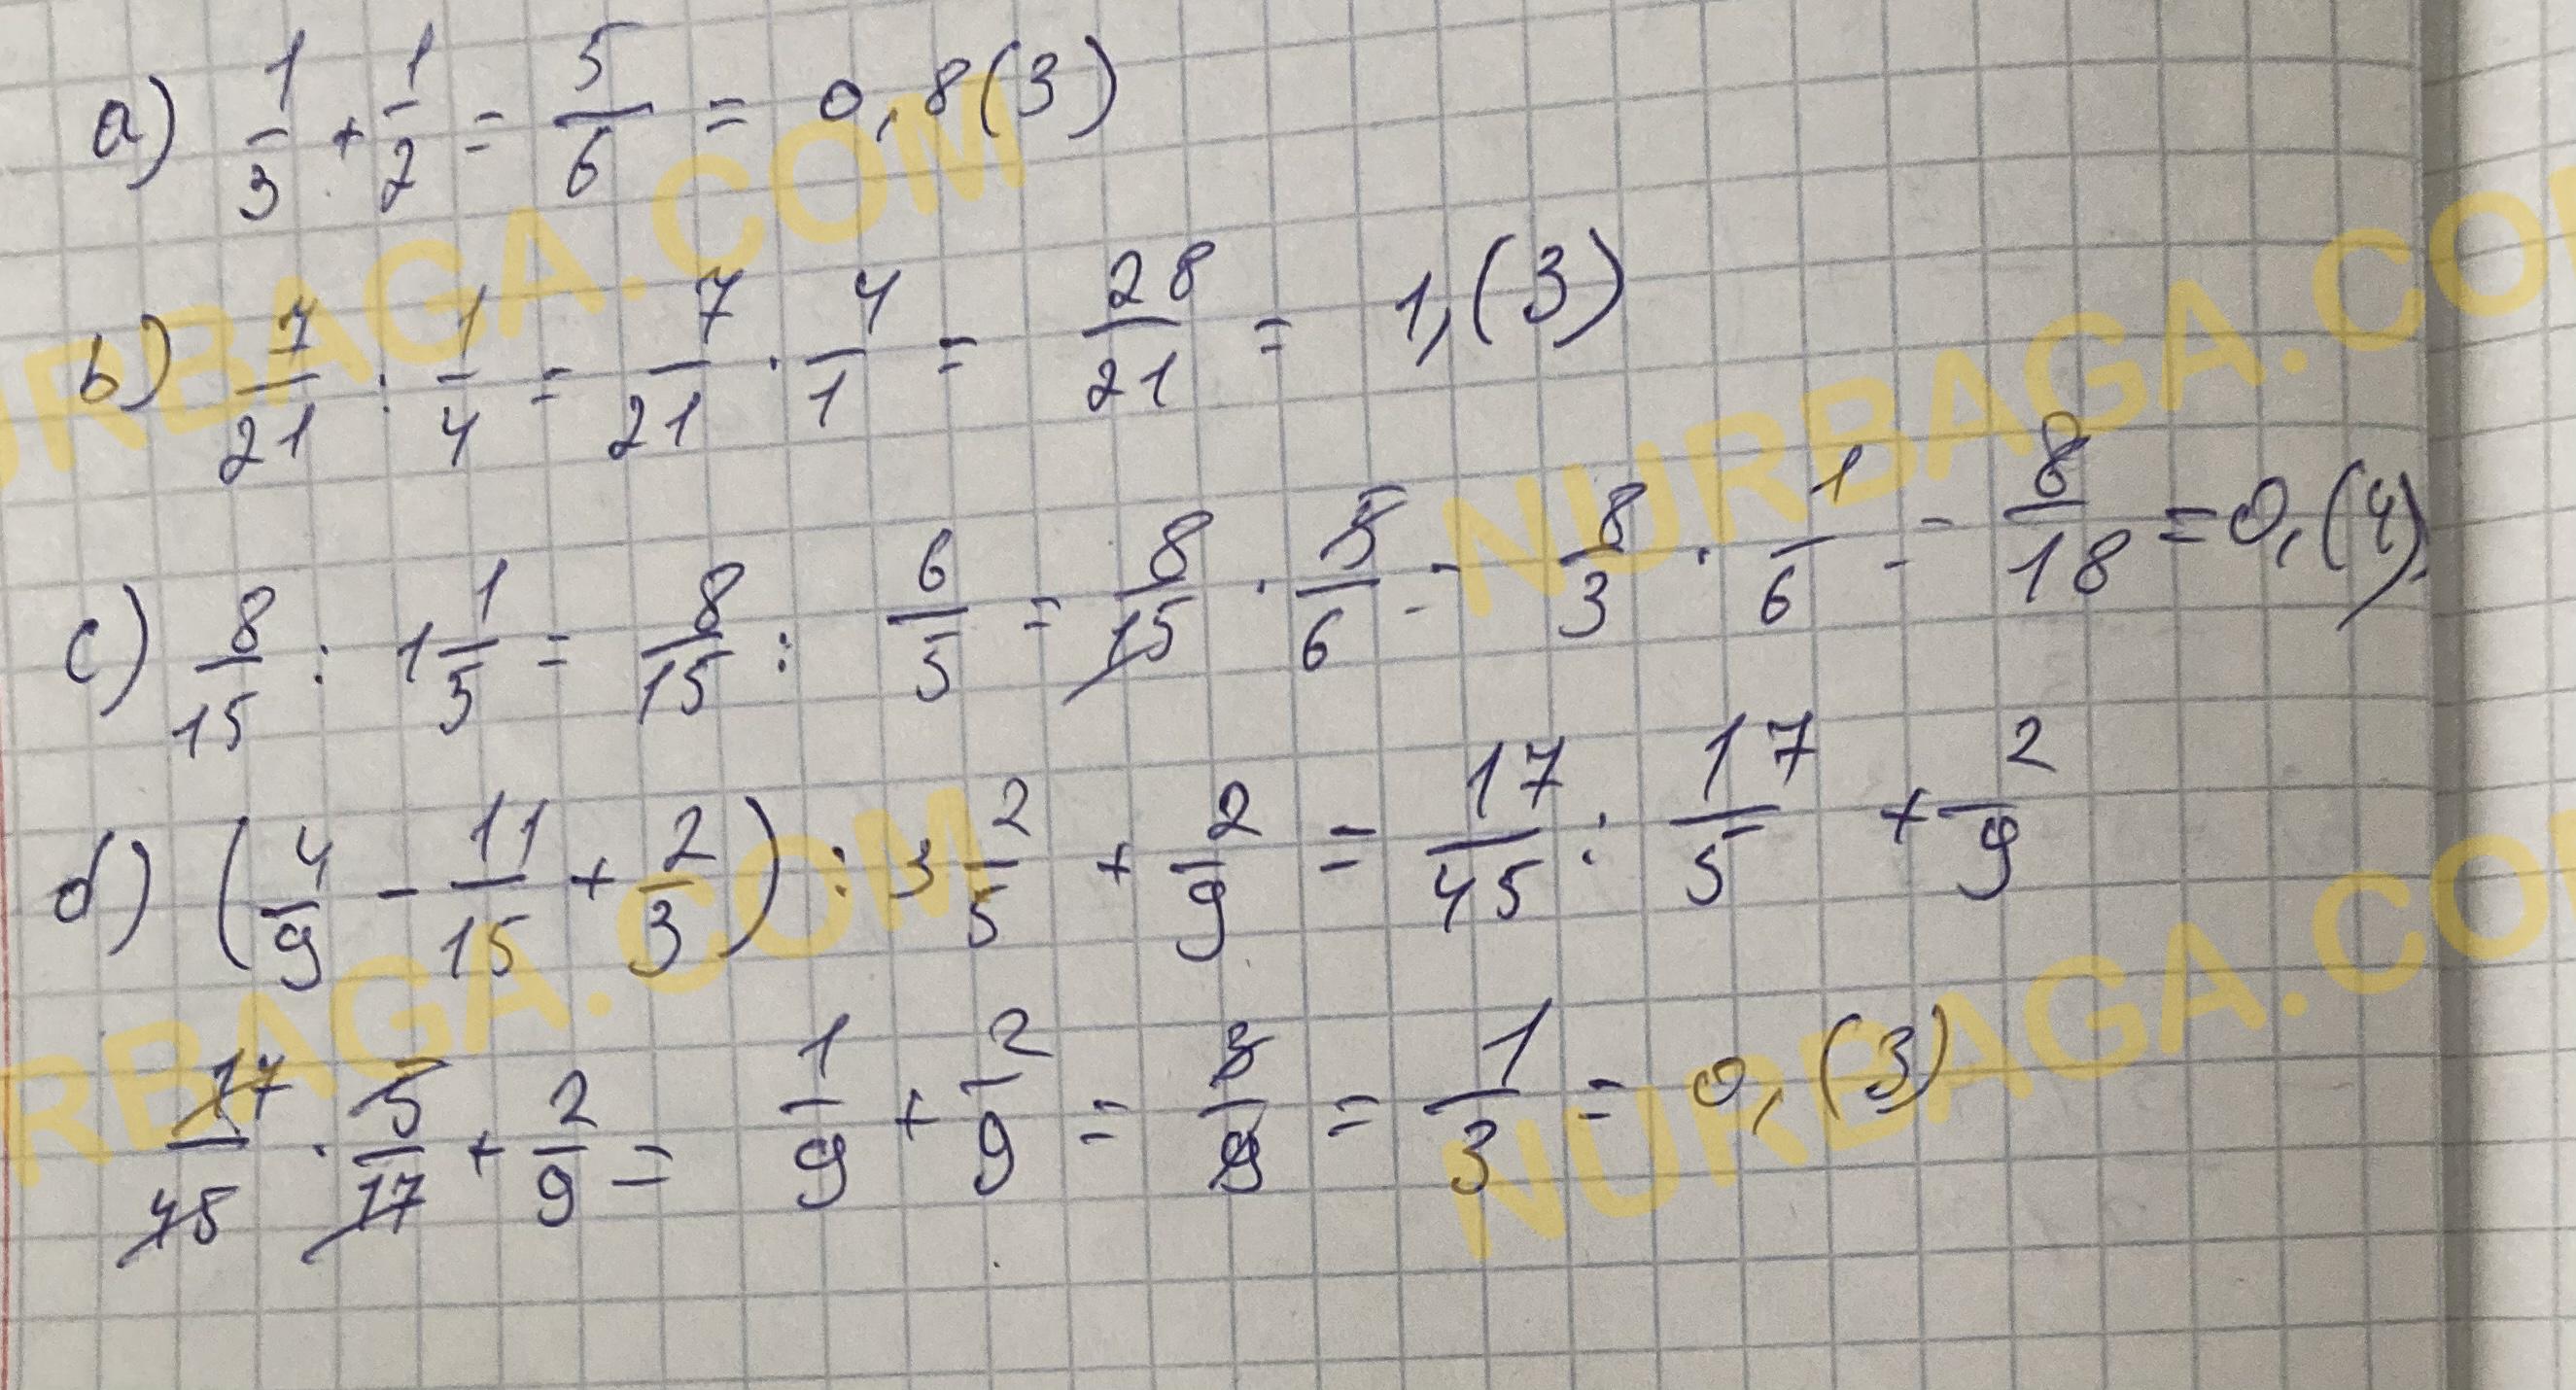 a) 1/3 + 1/2 = 5/6 = 0,8(3)
b) 7/21 : 1/4 = 7/21 · 4/1 = 28/21 = 1,(3)
c) 8/15 : 1 1/5 = 8/15 : 6/5 = 8/15 · 5/6 = 8/3 · 1/6 = 8/18 = 0,(4)
d) (4/9 - 11/15 + 2/3) : 3 2/5 + 2/9 = 17/45 : 17/5 + 2/9
17/45 · 5/17 + 2/9 = 1/9 + 2/9 = 3/9 = 1/3 = 0,(3)
NURBAGA.COM
NURBAGA.COM
NURBAGA.COM
NURBAGA.COM